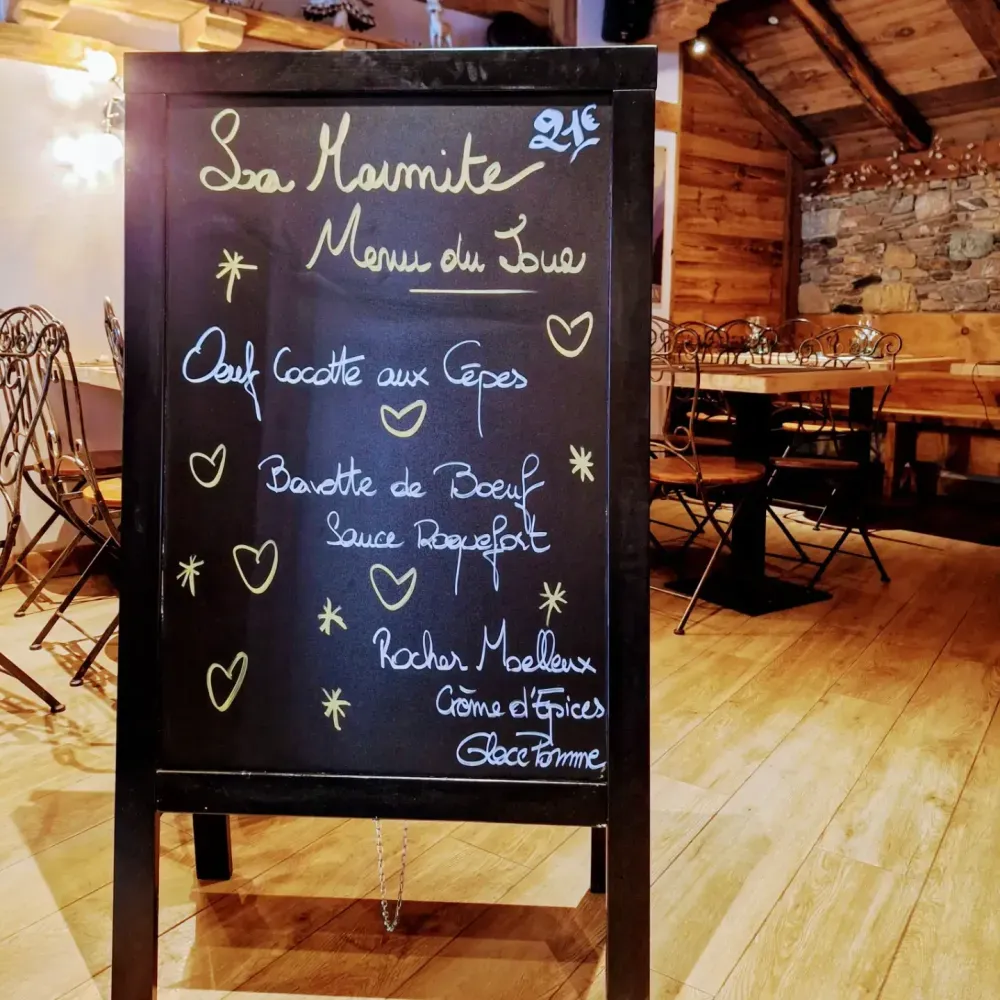 La Marmite 21€
Menu du Jour
Oeuf Cocotte aux Cèpes
Bavette de Boeuf
Sauce Roquefort
Rocher Moelleux
Crème d'Epices
Glace Pomme